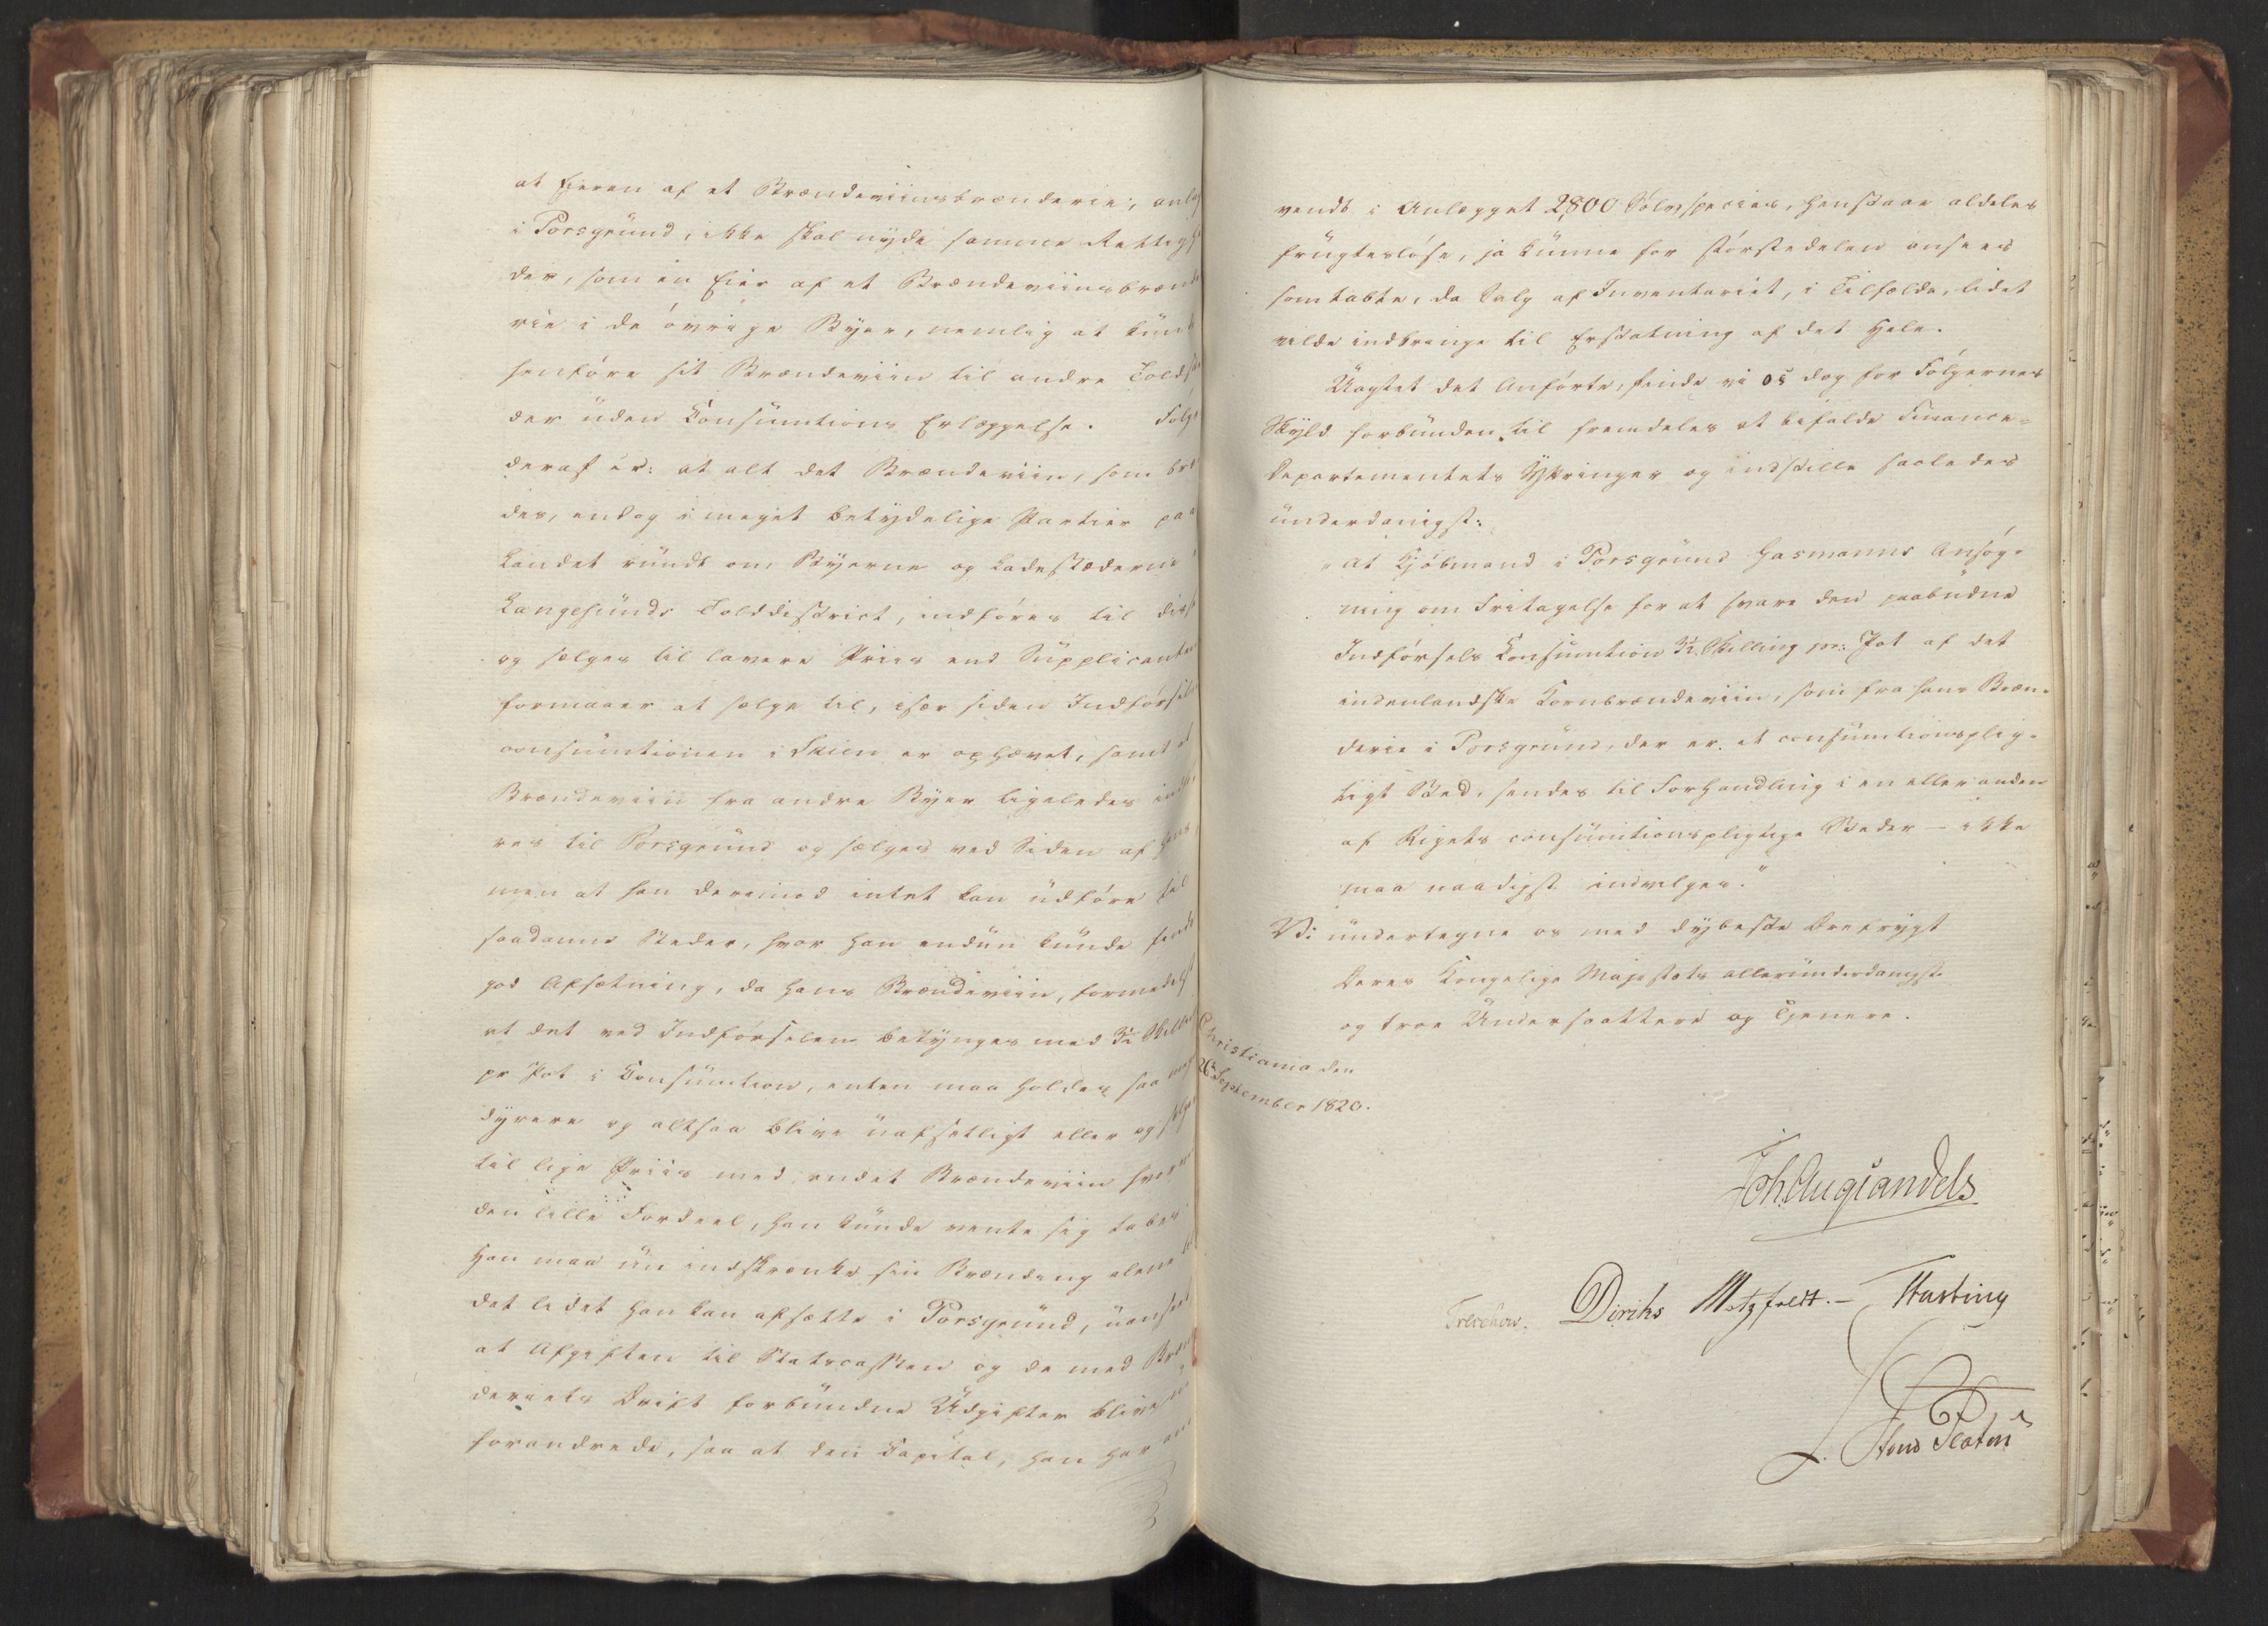 at Eieren af et Brændeviinsbrænderie, anlag
i Porsgrund, ikke skal nyde samme Rettighe
der, som en Eier af et Brændeviinsbrænde
rie i de övrige Byer, nemlig at kunde
henføre sit Brændeviin til andre Toldste
der uden Consumtions Erlæggelse. Følge
deraf er: at alt det Brændeviin, som bræ
des, endog i meget betydelige Partier paa
Landet rundt om Byerne og Ladestæderne i
Langesunds Tolddistrict, indføres til disse
og sælges til lavere Priis end Supplicanten
formaaer at sælge til, især siden Indførsels
consumtionen i Skien er ophævet, samt at
Brændeviin fra andre Byer ligeledes indfø
res til Porsgrund og sælges ved Siden af hans,
men at han derimod intet kan udføre til
saadanne Steder, hvor han endnu kunde finde
god Afsætning, da hans Brændeviin, formedelst
at det ved Indførselen betynges med 3½ Skilling
pr Pot i Consumtion, enten maa holdes saa meget
dyrere og altsaa blive uafsætligt eller og sælges
til lige Priis med andet Brændeviin hvorved
den lille Fordeel, han kunde vente sig tabes
Han maa nu indskrænke sin Brænding alene til
det lidet han kan afsætte i Porsgrund, uanseet
at Afgiften til Statscassen og de med Bræn
deriets Drift forbundne Udgifter blive u
forandrede, saa at den Capital, han har an
vendt i Anlægget 2800 Sølvspecies, henstaae aldeles
frugtesløse, ja kunne for störstedelen ansees
som tabte, da Salg af Inventariet, i Tilfælde, lidet
vilde indbringe til Erstatning af det Hele.
Uagtet det Anførte, finde vi os dog for Følgernes
Skyld forbunden til fremdeles at bifalde Finance-
Departementets Yttringer og indstille saaledes
underdanigst:
"at Kjöbmand i Porsgrund Hasmanns Ansøg-
ning om Fritagelse for at svare den paabudne
Indførsels Consumtion 3½ Skilling pr: Pot af det
indenlandske Kornbrændeviin, som fra hans Bræn-
derie i Porsgrund, der er et consumtionsplig-
tigt Sted, sendes til Forhandling i en eller anden
af Rigets consumtionspligtige Steder — ikke
maa naadigst indvilges."
Vi undertegne os med dybeste Ærefrygt
Deres Kongelige Majestæts allerunderdanigste
og troe Undersaattere og Tjenere.
Christiania den
26 September 1820.
Joh Aug Sandels
Treschow. Diriks Motzfeldt. — Fasting
Sibbern Platou